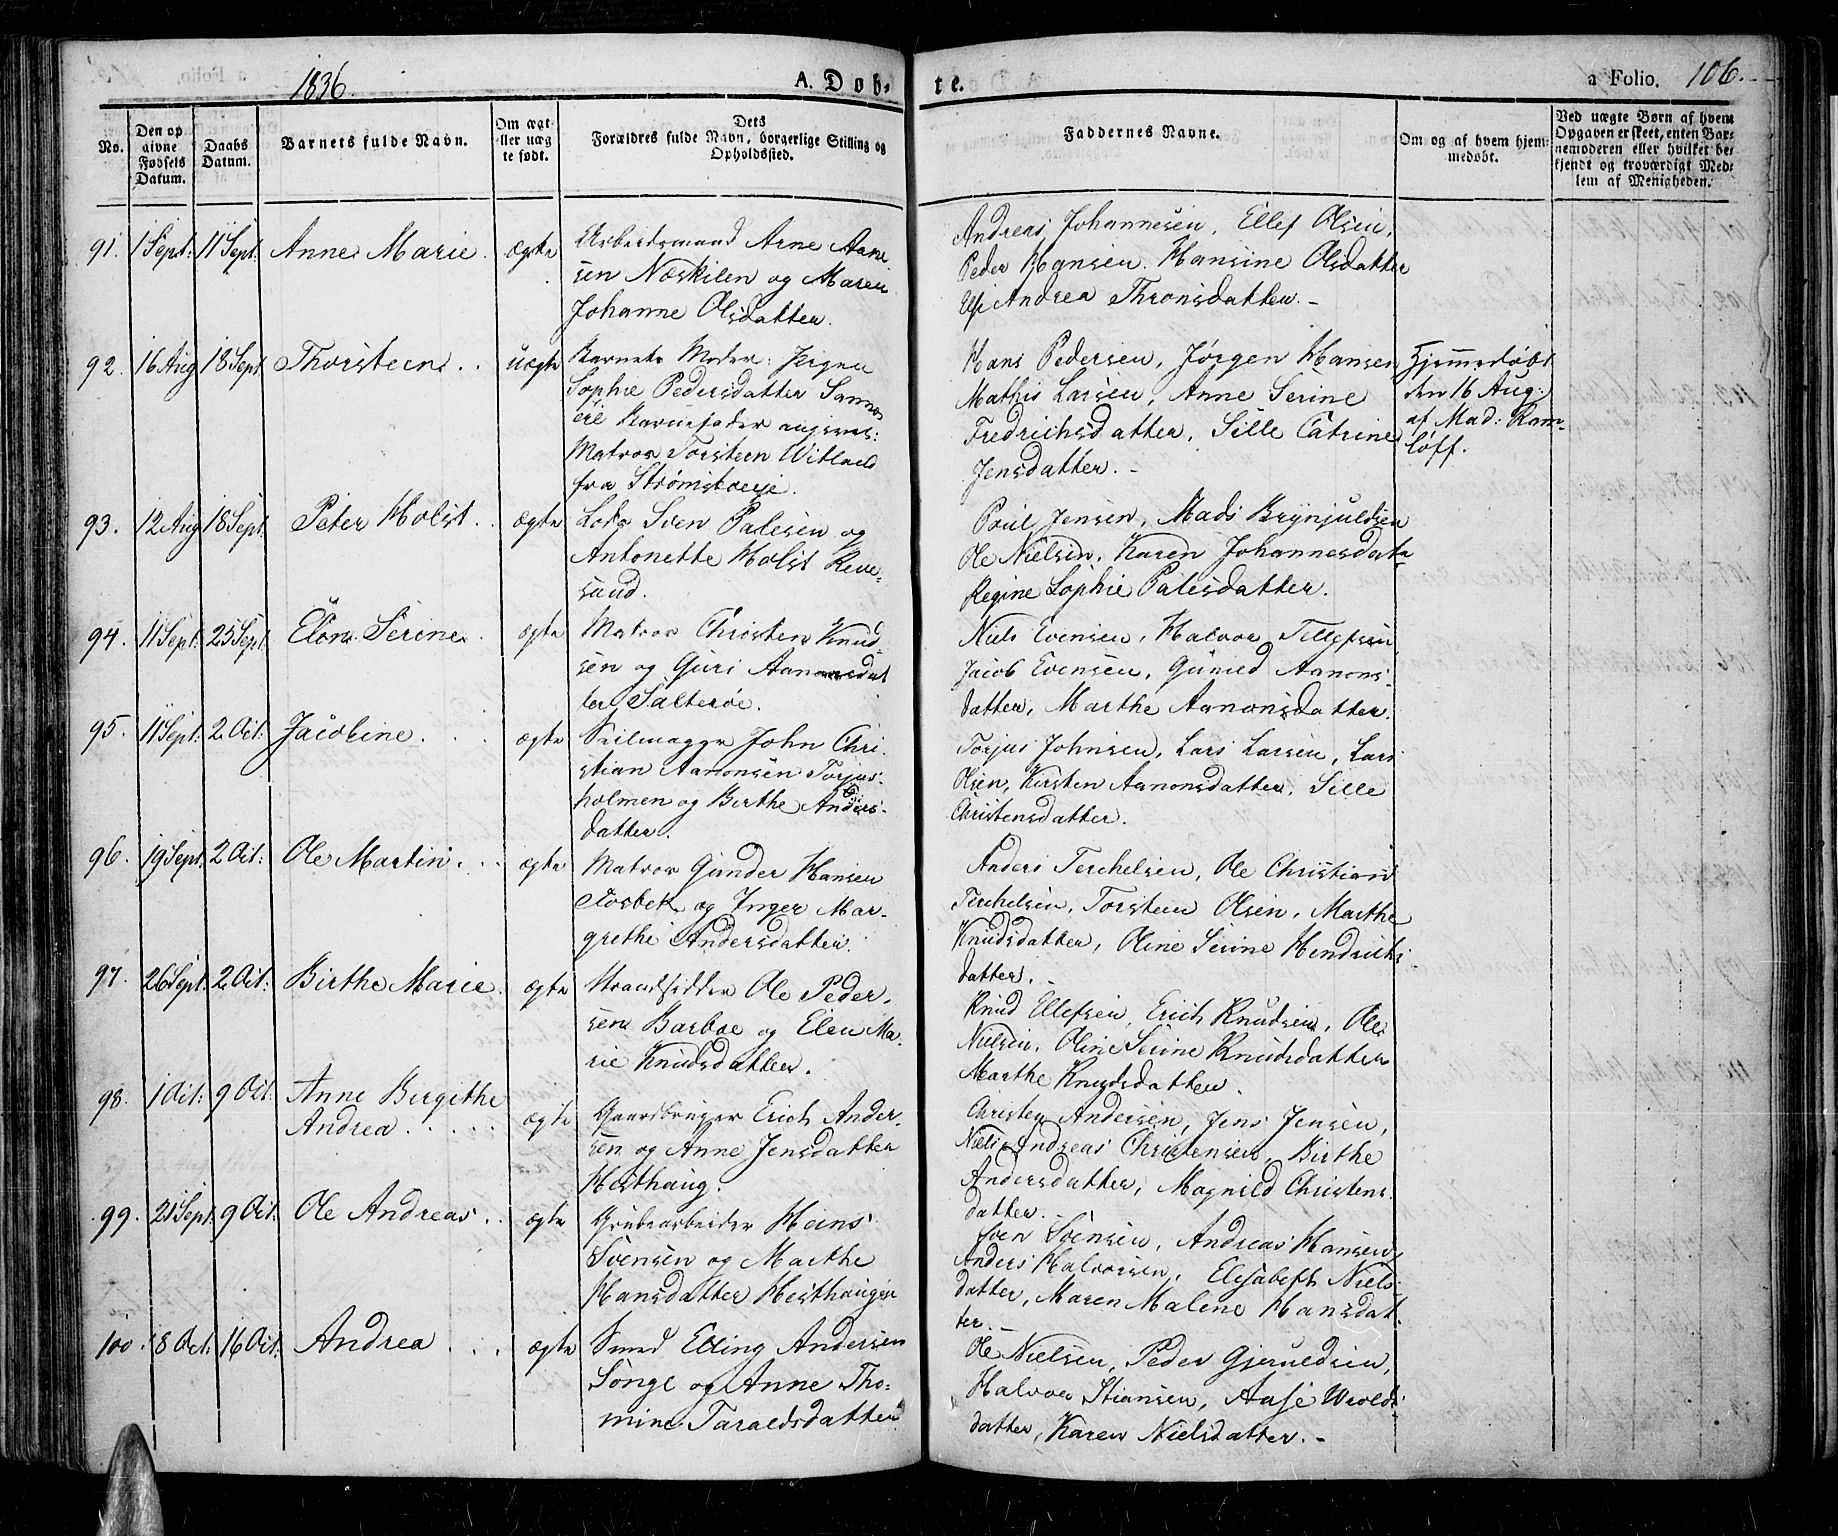 1836.
A. Døb-
te.
a Folio. 106.
No.
Den op
givne
Fødsels
Datum.
Daabs
Datum.
Barnets fulde Navn.
Om ægt
eller uæg
te født.
Dets
Forældres fulde Navn, borgerlige Stilling og
Opholdssted.
Faddernes Navne.
Om og af hvem hjem-
medøbt.
Ved uægte Børn af hvem
Opgaven er skeet, enten Bar-
nemoderen eller hvilket be-
kjendt og troværdigt Med-
lem af Menigheden.
91. 1 Sept: 11 Sept. Anne Marie. ægte
Arbeidsmand Arne Aane
sen Næskilen og Maren
Johanne Olsdatter.
Andreas Johannesen, Ellef Olsen,
Peder Hansen, Hansine Olsdatter
Andrea Thronsdatter. -
92. 16 Aug 18 Sept Thorsteen . . uægte
Barnets Moder: Jørgine
Sophie Pedersdatter
Barnefader angives:
Matros Torsteen
fra
Hans Pedersen, Jørgen Hansen
Mathis Larsen, Anne Serine
Fredrichsdatter, Sille Catrine
Jensdatter. -
Hjemmedøbt
den 16 Aug:
af Mad: Ram-
løff.
93. 12 Aug 18 Sept. Peter Holst . . ægte
Lods Sven Palesen og
Antonette Holst Reve-
sund.
Poul Jensen, Mads Brynjuldsen
Ole Nielsen, Karen Johannesdatr
Regine Sophie Palesdatter.
94. 11 Sept. 25 Sept. Elen Serine . ægte
Matros Christen Knud
sen og Guri Aanonsdat
ter Salterøe.
Niels Evensen, Halvor Tellefsen
Jacob Evensen, Gunild Aanons-
datter, Marthe Aanonsdatter.
95. 11 Sept: 2 Oct: Jacobine . . . ægte
Seilmager John Chri-
stian Aanonsen Torjus-
holmen og Birthe Anders-
datter.
Torjus Johnsen, Lars Larsen, Lars
Olsen, Kirsten Aanonsdatter, Sille
Christensdatter.
96. 19 Sept: 2 Oct: Ole Martin . . . ægte
Matros Gunder Hansen
og Inger Mar-
grethe Andersdatter.
Anders Terchelsen, Ole Christian
Terchelsen, Torsteen Olsen, Marthe
Knudsdatter, Oline Serine Hendrichs-
datter. -
97. 26 Sept. 2 Oct: Birthe Marie. ægte
Strandsidder Ole Peder-
sen Barboe og Elen Ma-
rie Knudsdatter.
Knud Ellefsen, Erich Knudsen, Ole
Nielsen, Oline Serine Knudsdatter
Marthe Knudsdatter.
98. 1 Oct: 9 Oct. Anne Birgithe
Andrea . . . . . ægte
Gaardbruger Erich Ander-
sen og Anne Jensdatter
Hesthaug.
Christen Andersen, Jens Jensen,
Niels Andreas Christensen, Birthe
Andersdatter, Magnild Christens-
datter. -
99. 21 Sept. 9 Oct. Ole Andreas . . ægte
Grubearbeider Hans
Svensen og Marthe
Hansdatter Hesthaugen
Sven Svensen, Andreas Hansen,
Anders Halvorsen, Elisabeth Niels-
datter, Maren Malene Hansdat-
ter. -
100. 8 Oct: 16 Oct: Andrea . . . ægte
Smed Elling Andersen
Songe og Anne Tho-
mine Taraldsdatter
Ole Nielsen, Peder Gjeruldsen,
Halvor Stiansen, Aase Wrolds-
datter, Karen Nielsdatter. -